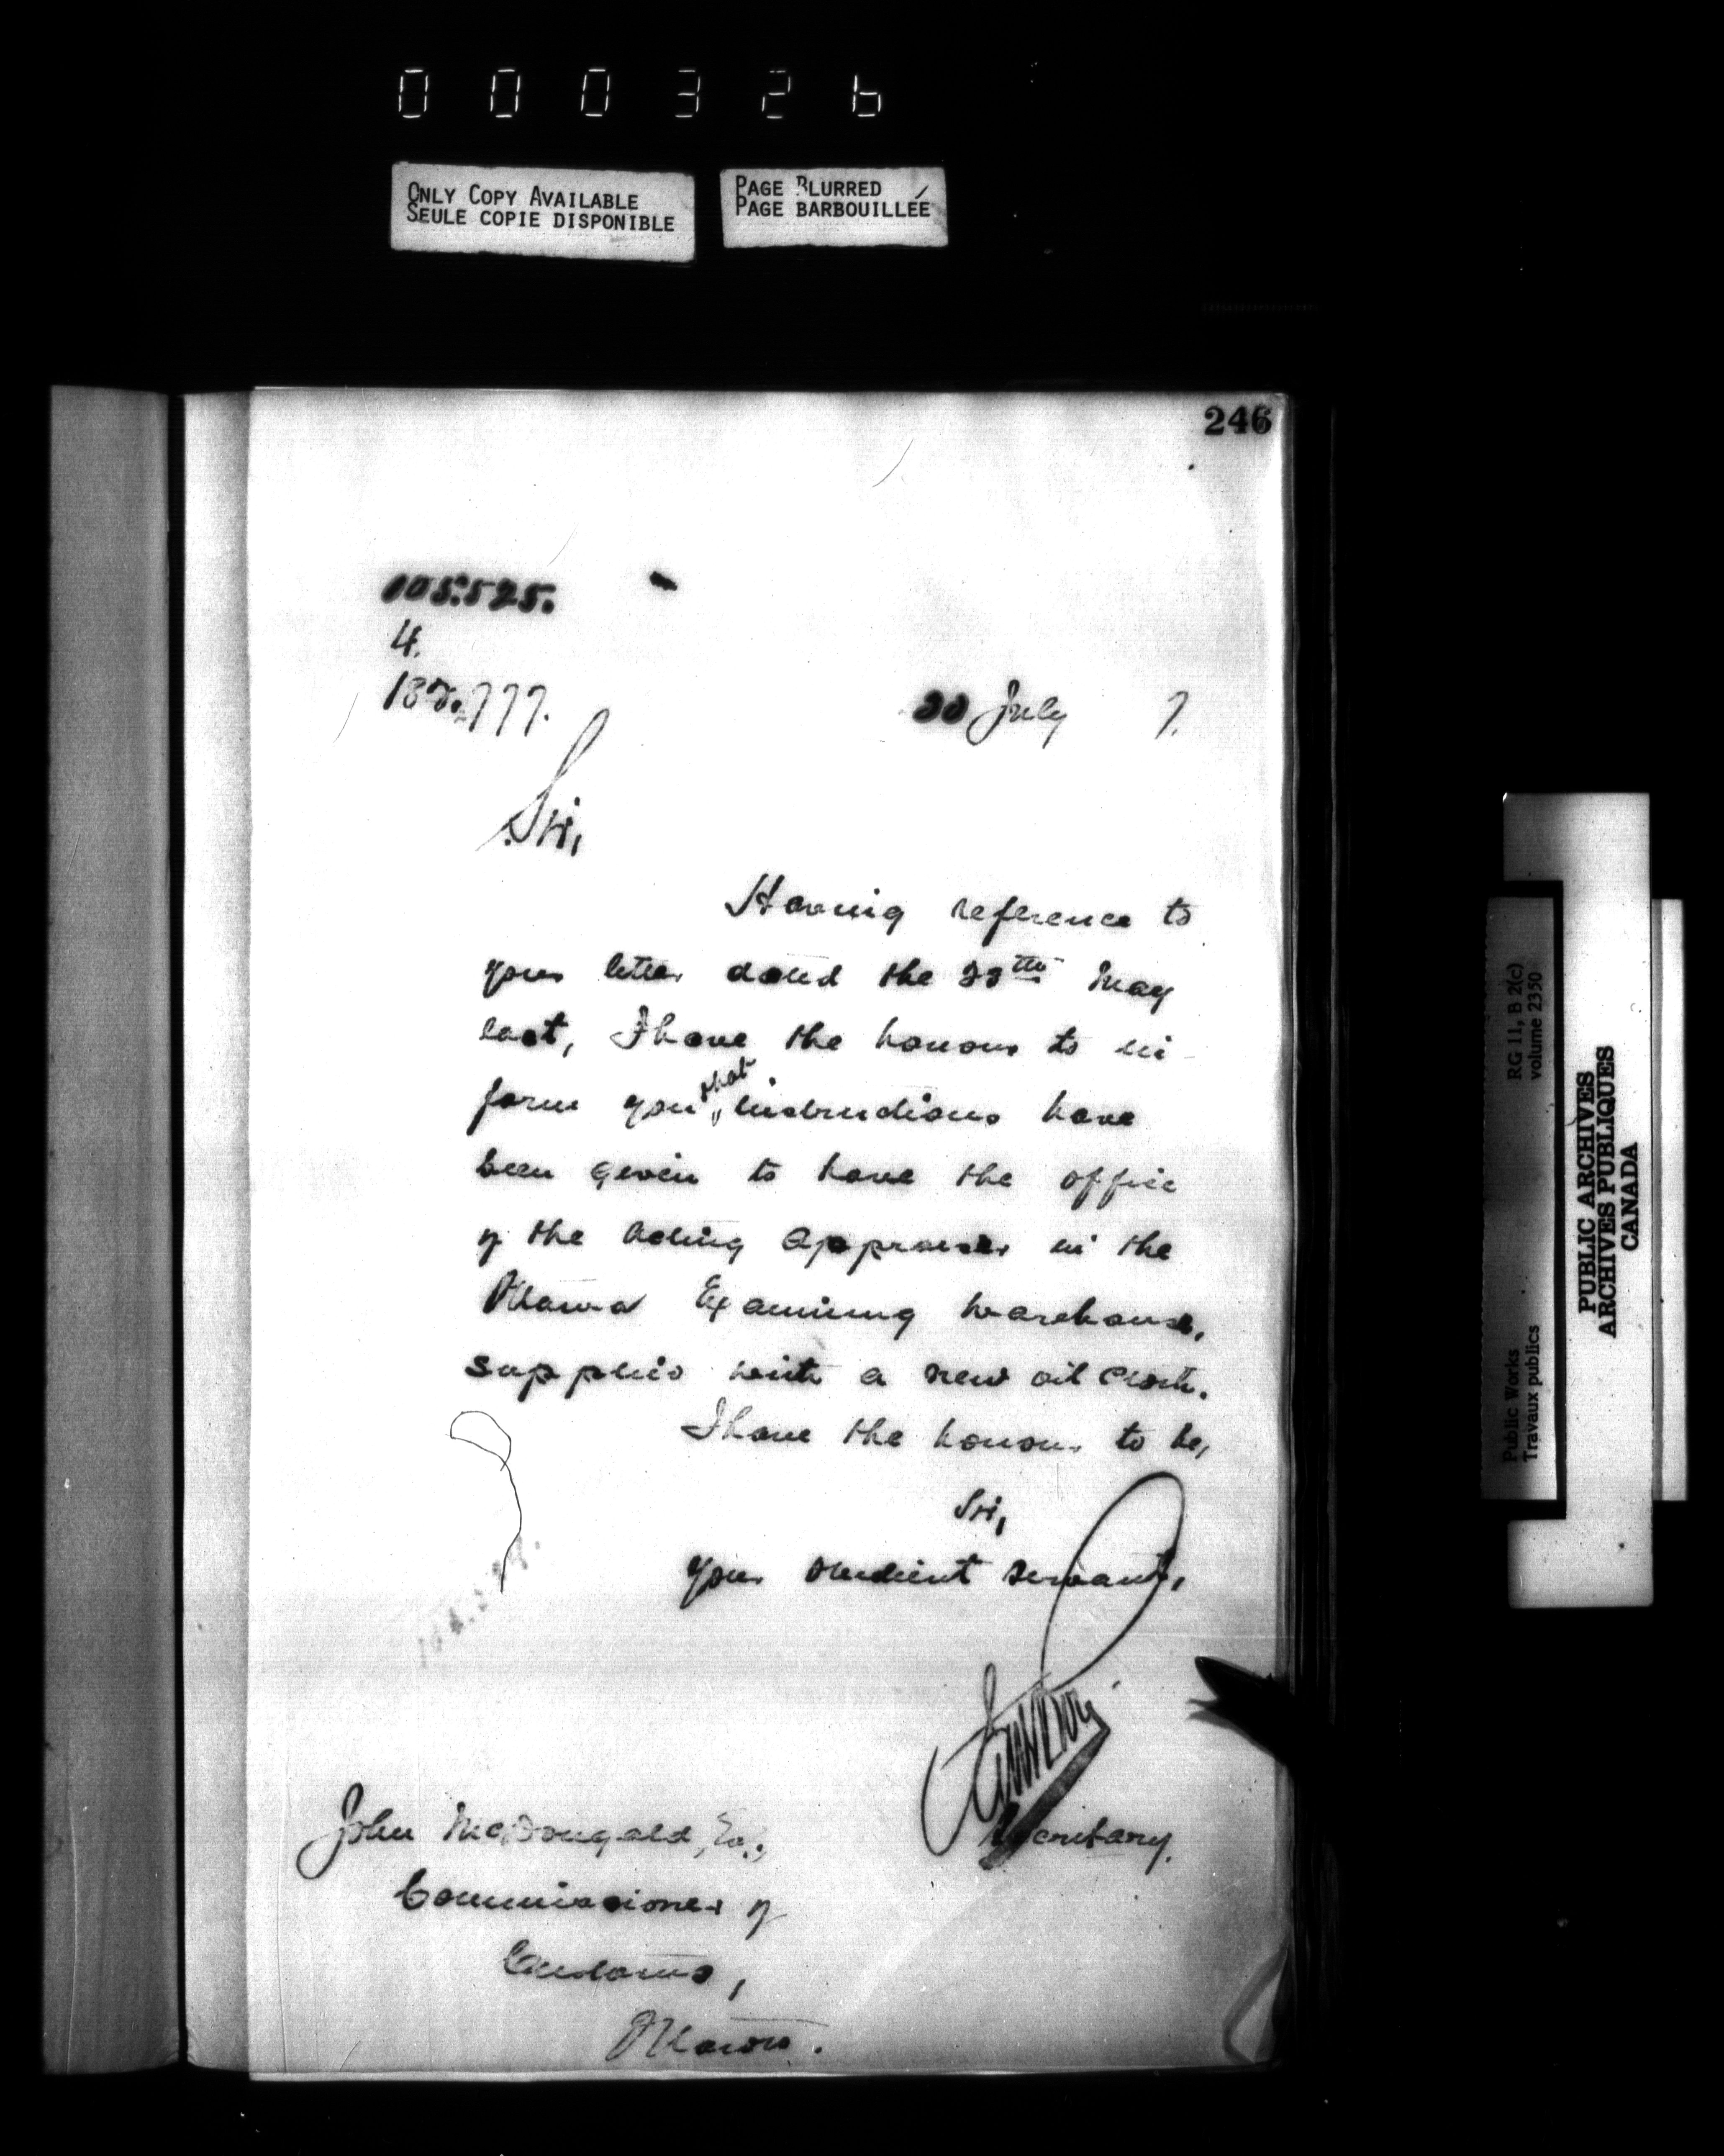 000326
ONLY COPY AVAILABLE
SEULE COPIE DISPONIBLE
PAGE BLURRED
PAGE BARBOUILLÉE
246
105.525.
4.
20 July 7.
Sir,
Having reference to
your letter dated the 28th May
last, I have the honour to in-
form you that instructions have
been given to have the office
of the Acting Appraiser in the
Ottawa Examining Warehouse,
supplied with a new oil cloth.
I have the honour to be,
Sir,
Your obedient servant,
Secretary.
John McDougald, Esq.,
Commissioner of
Customs,
Ottawa.
RG 11, B 2(c)
volume 2350
Public Works
Travaux publics
PUBLIC ARCHIVES
ARCHIVES PUBLIQUES
CANADA